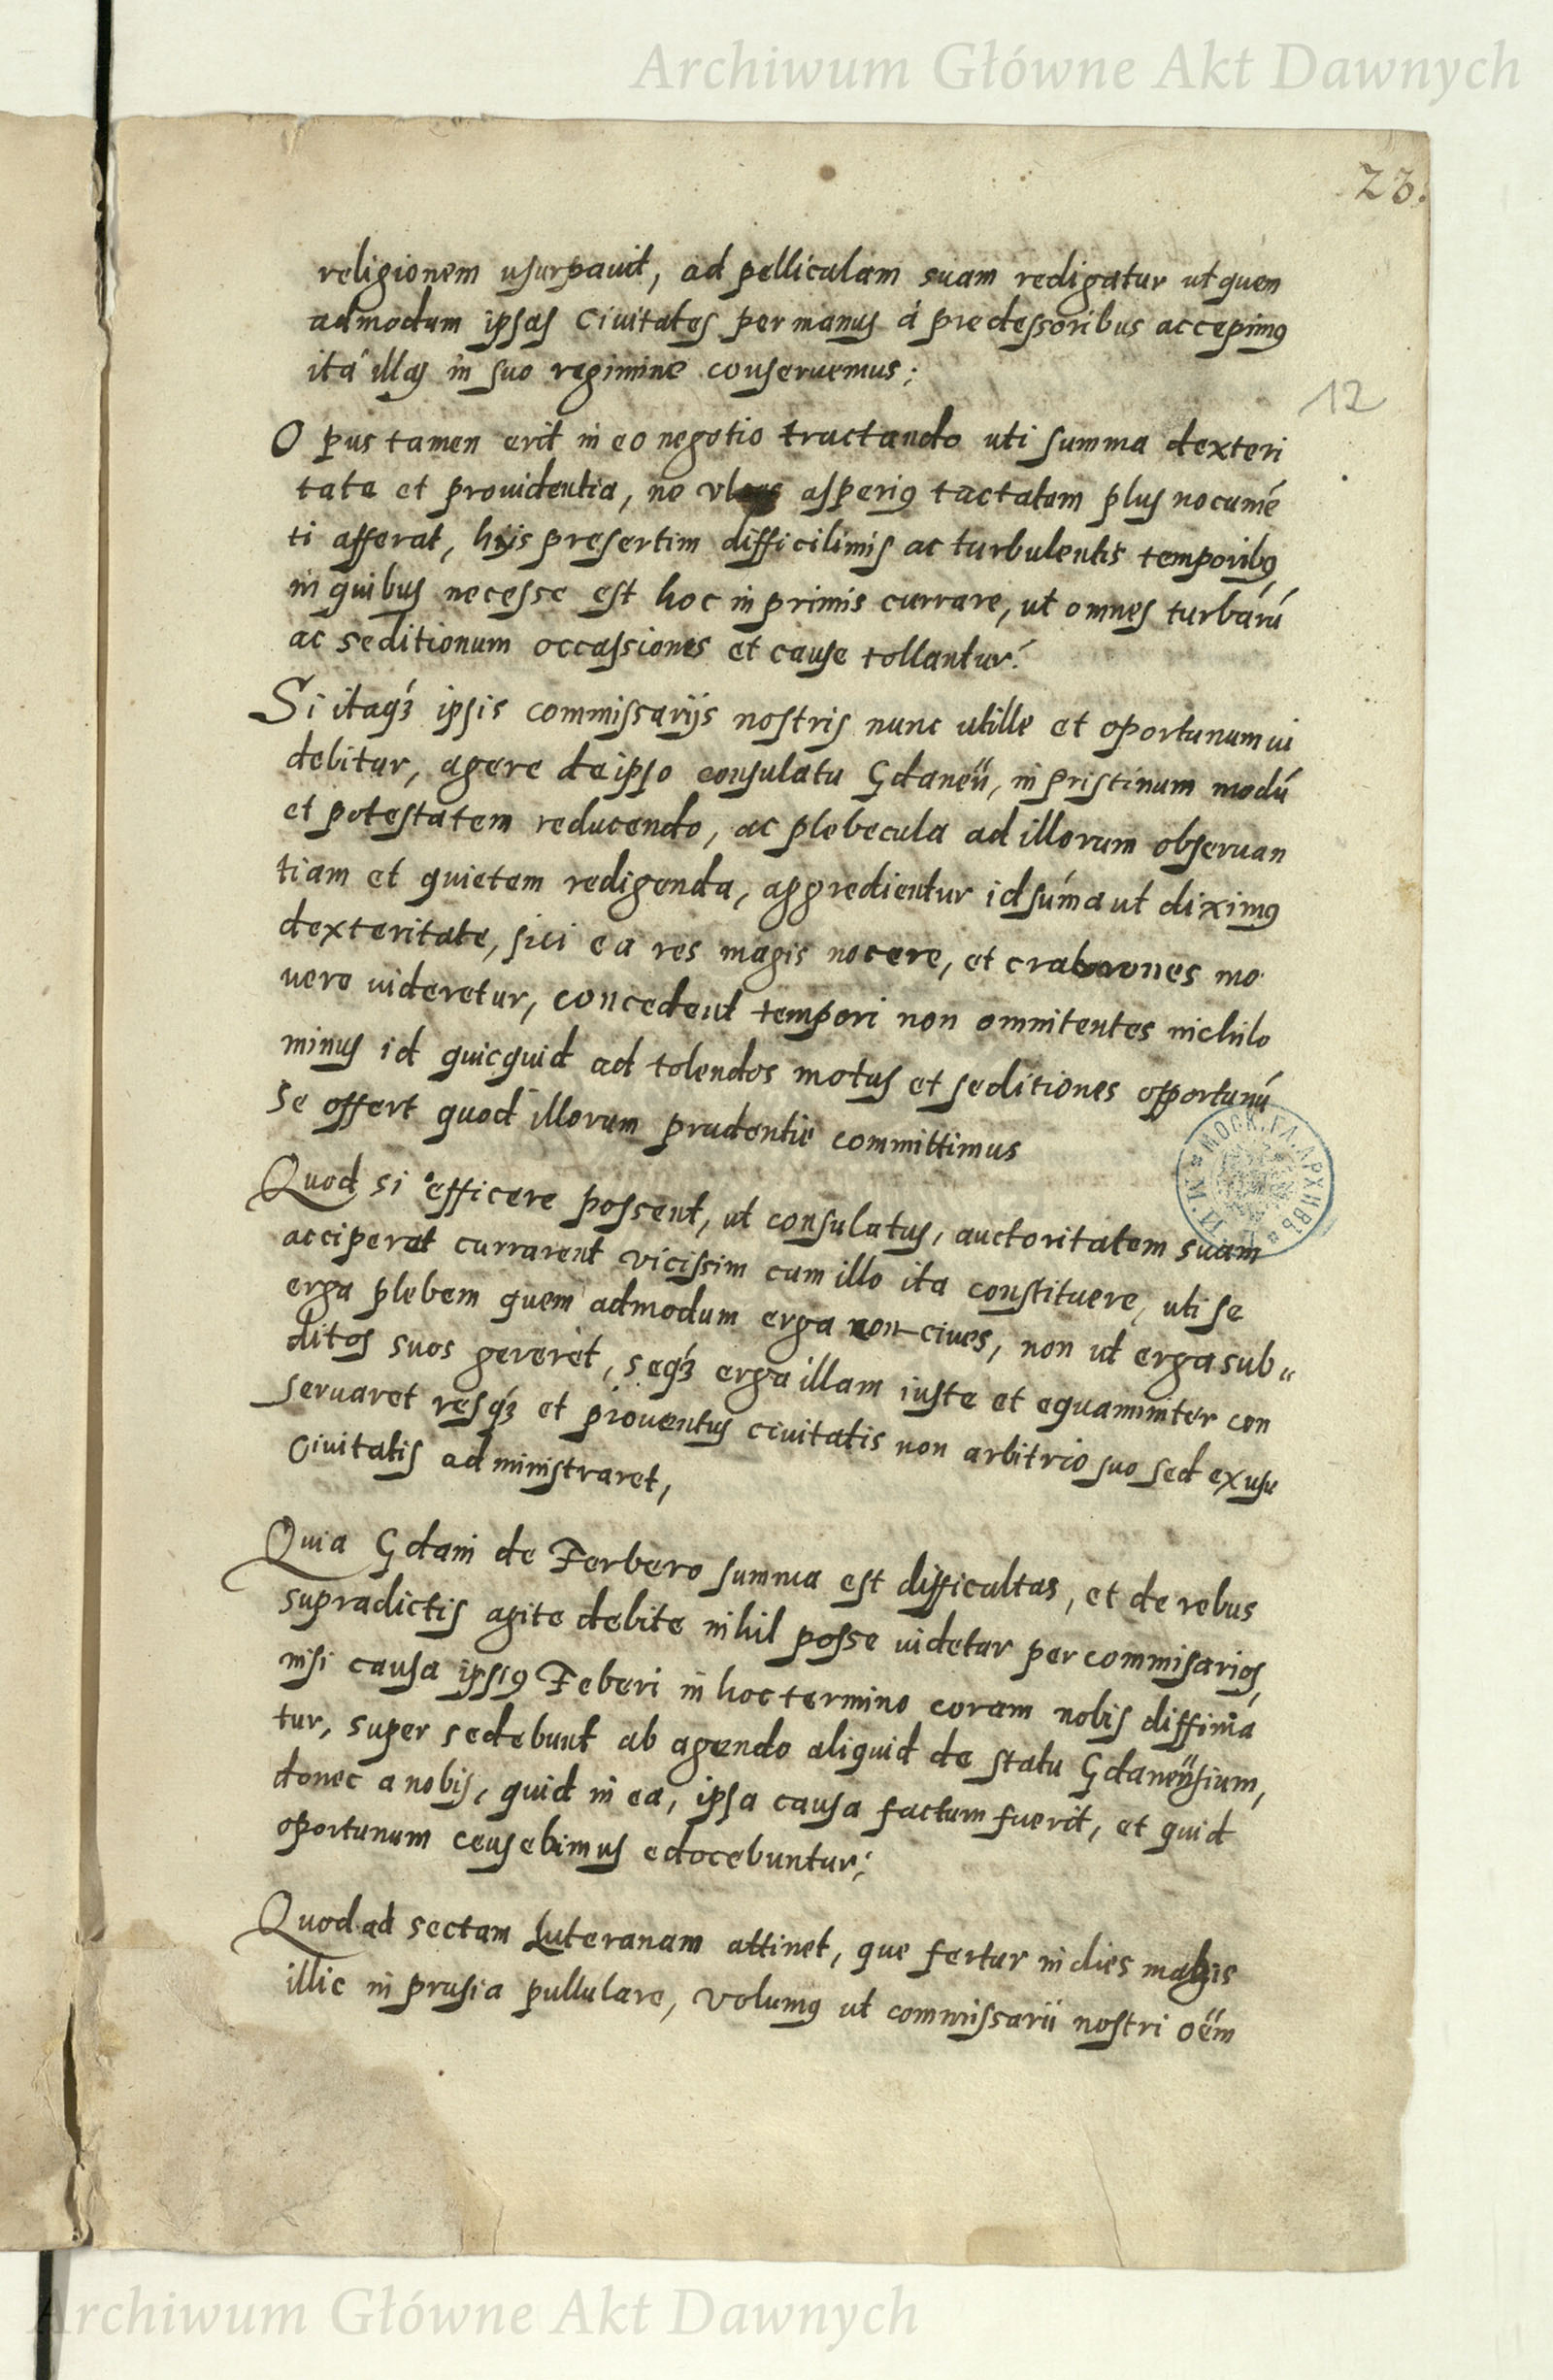 Archiwum Główne Akt Dawnych
23.
religionem usurpauit, ad pelliculam suam redigatur ut quen
admodum ipsas Ciuitates per manus á predessoribus accepimꝰ
itá illas in suo regimine conseruemus;
12
Opus tamen erit in eo negotio tractando uti summa dexteri
tate et prouidentia, ne asperiꝰ tactatem plus nocumē
ti afferat, hijs presertim difficilimis ac turbulentis temporibꝰ
in quibus necesse est hoc in primis currare, ut omnes turbarū
ac seditionum occassiones et cause tollantur.
Si itaqꝫ ipsis commissarijs nostris nunc utille et oportunum ui
debitur, agere de ipso consulatu Gdaneñ, in pristinum modū
et potestatem reducendo, ac plebecula ad illorum obseruan
tiam et quietem redigenda, aggredientur id sūma ut diximꝰ
dexteritate, sici ea res magis nocere, et crabrones mo
uere uideretur, concedent tempori non omnitentes nichilo
minus id quicquid ad tolendos motus et seditiones opportunū
se offert quod illorum prudentie committimus
И. М. МОСК. ГЛ. АРХИВЪ
Quod si efficere possent, ut consulatus, auctoritatem suam
acciperet currarent vicissim cum illo ita constituere, uti se
erga plebem quem admodum erga con ciues, non ut erga sub„
ditos suos gereret, seqꝫ erga illam iuste et equanimiter con
seruaret resqꝫ et prouentus ciuitatis non arbitrio suo sed ex usu
Ciuitatis administraret,
Quia Gdani de Ferbero summa est difficultas, et de rebus
supradictis agite debite nihil posse uidetur per commisarios,
nisi causa ipsiꝰ Feberi in hoc termino coram nobis diffinia
tur, super sedebunt ab agendo aliquid de statu Gdaneñsium,
donec a nobis, quid in ea, ipsa causa factum fuerit, et quid
oportunum censebimus edocebuntur;
Quod ad sectam Luteranam attinet, que fertur in dies magis
illic in prusia pullulare, volumꝰ ut commissarii nostri oēm
Archiwum Główne Akt Dawnych